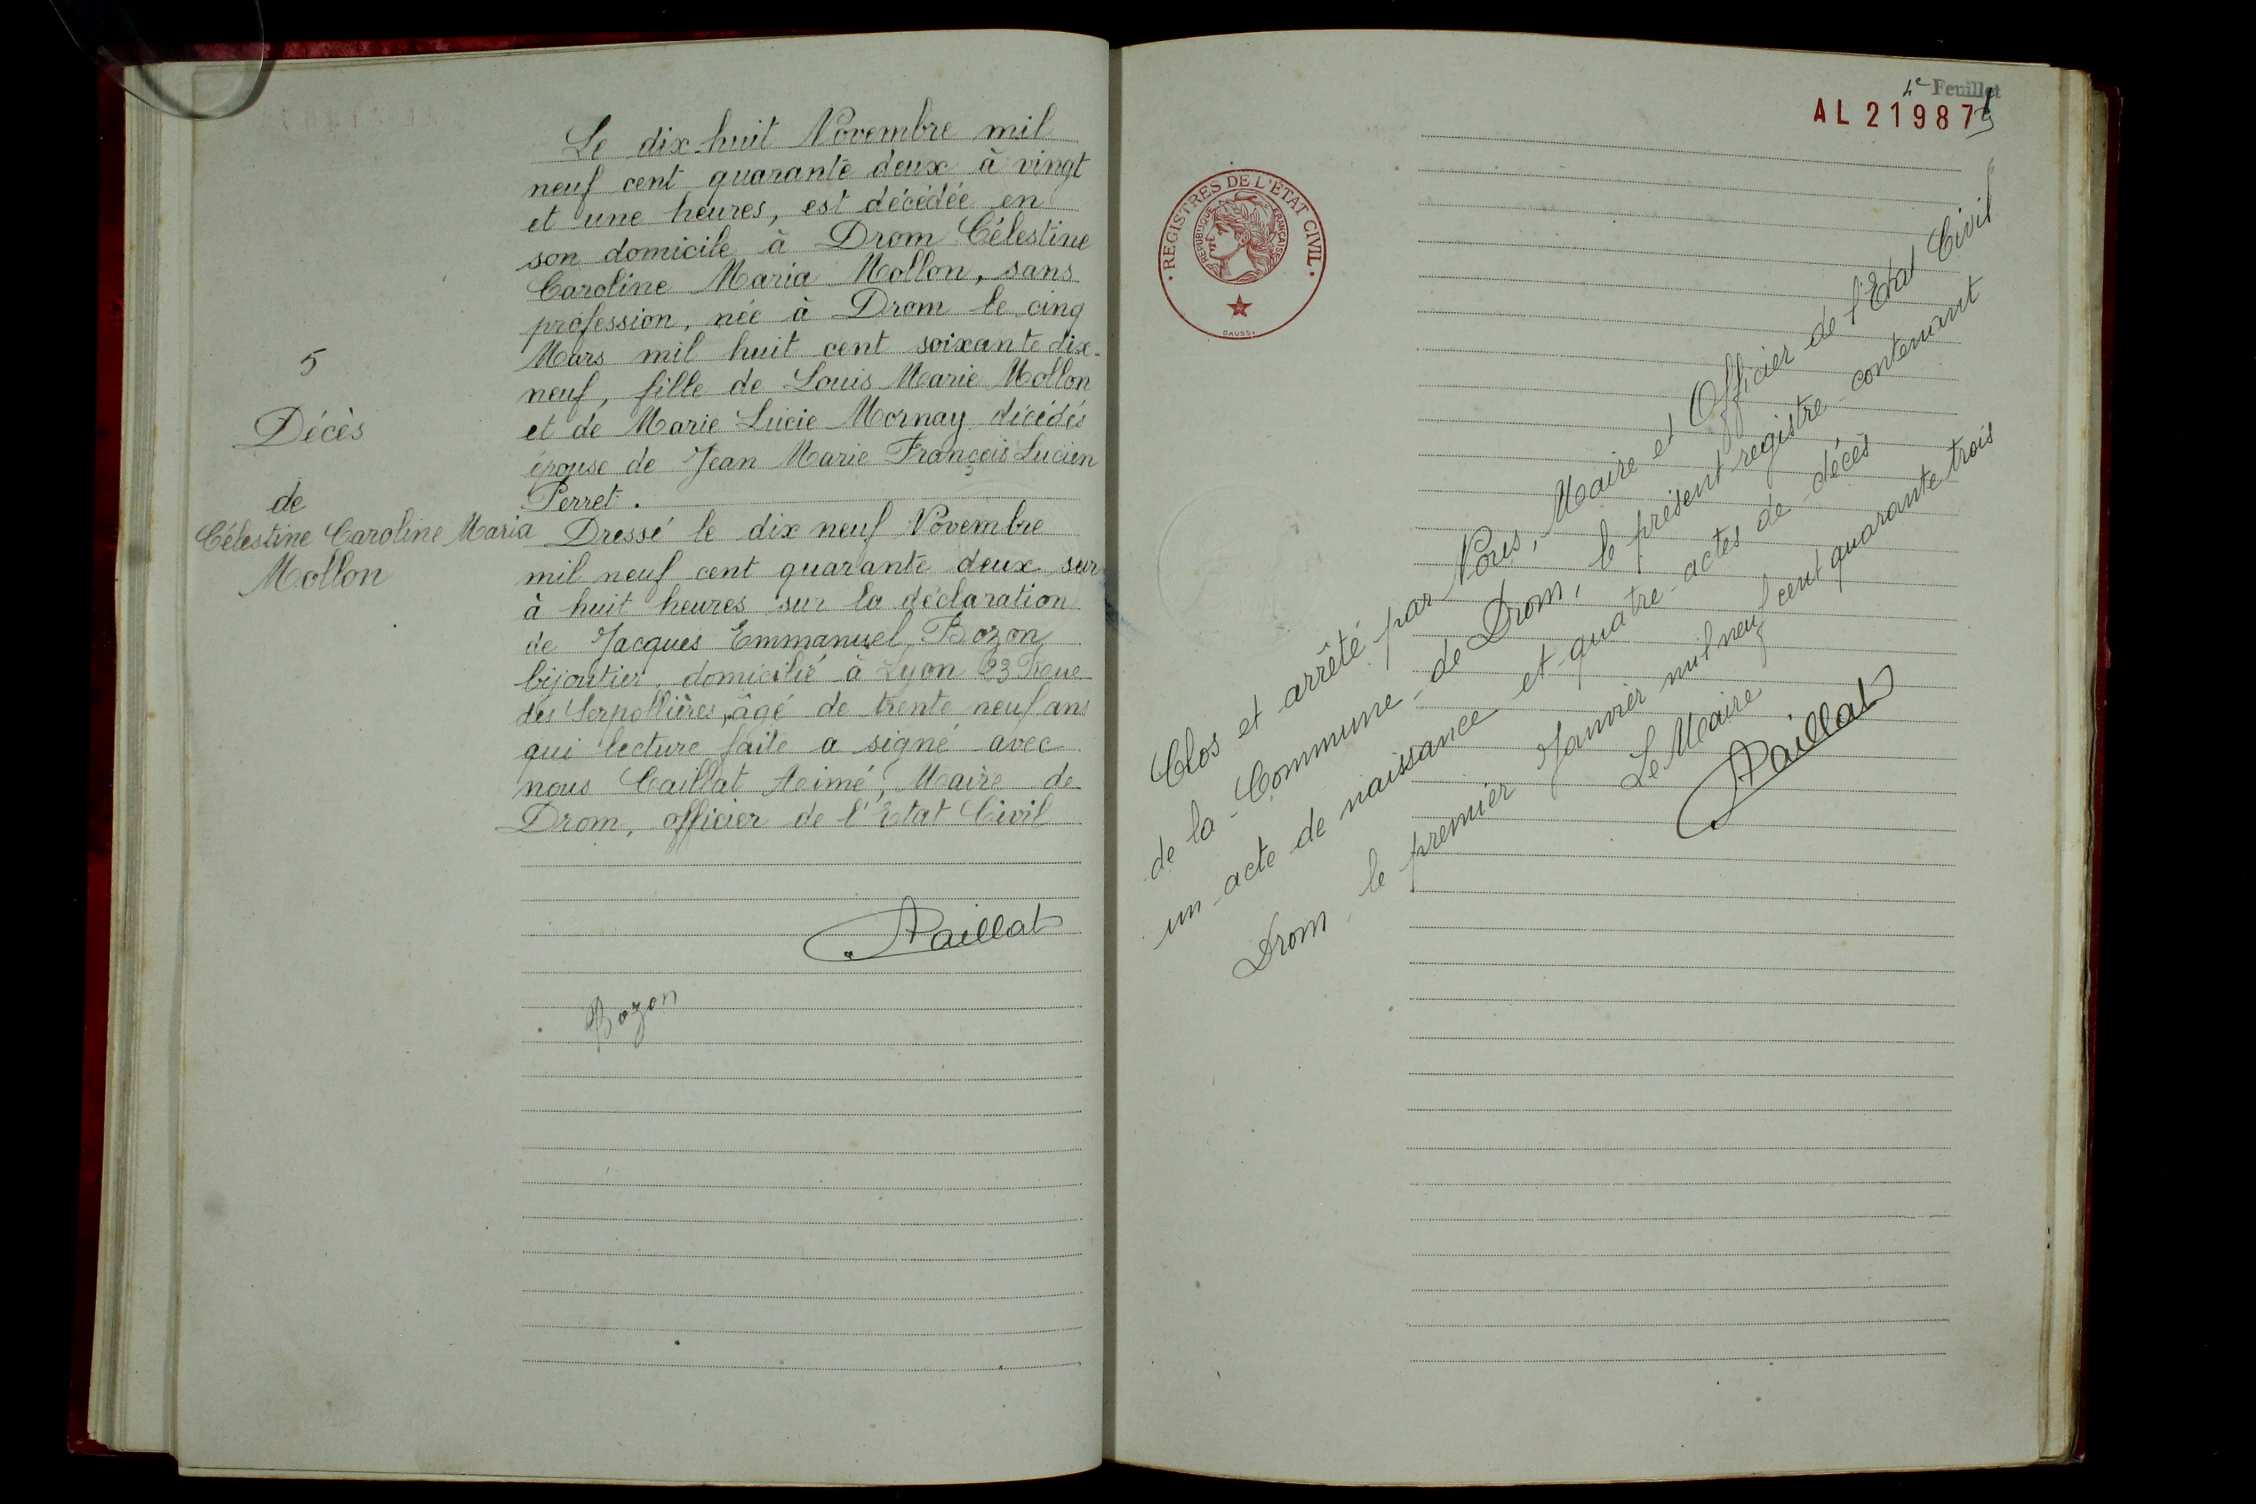 5
Décès
de
Célestine Caroline Maria
Mollon
Le dix huit Novembre mil
neuf cent quarante deux à vingt
et une heures, est décédée en
son domicile à Drom Célestine
Caroline Maria Mollon, sans
profession, née à Drom le cinq
Mars mil huit cent soixante dix-
neuf, fille de Louis Marie Mollon
et de Marie Lucie Mornay décédés
épouse de Jean Marie François Lucien
Perret.
Dressé le dix neuf Novembre
mil neuf cent quarante deux sur
à huit heures sur la déclaration
de Jacques Emmanuel Bozon
bijoutier, domicilié à Lyon 23 Rue
des Serpollières, âgé de trente neuf ans
qui lecture faite a signé avec
nous Caillat Aimé, Maire de
Drom, officier de l'Etat Civil
ACaillat
Bozon
4e Feuillet
AL 21987
• REGISTRES DE L'ÉTAT CIVIL •
REPUBLIQUE FRANÇAISE
Clos et arrêté par Nous, Maire et Officier de l'Etat Civil
de la Commune de Drom, le présent registre contenant
un acte de naissance et quatre actes de décès
Drom le premier Janvier mil neuf cent quarante trois
Le Maire
ACaillat